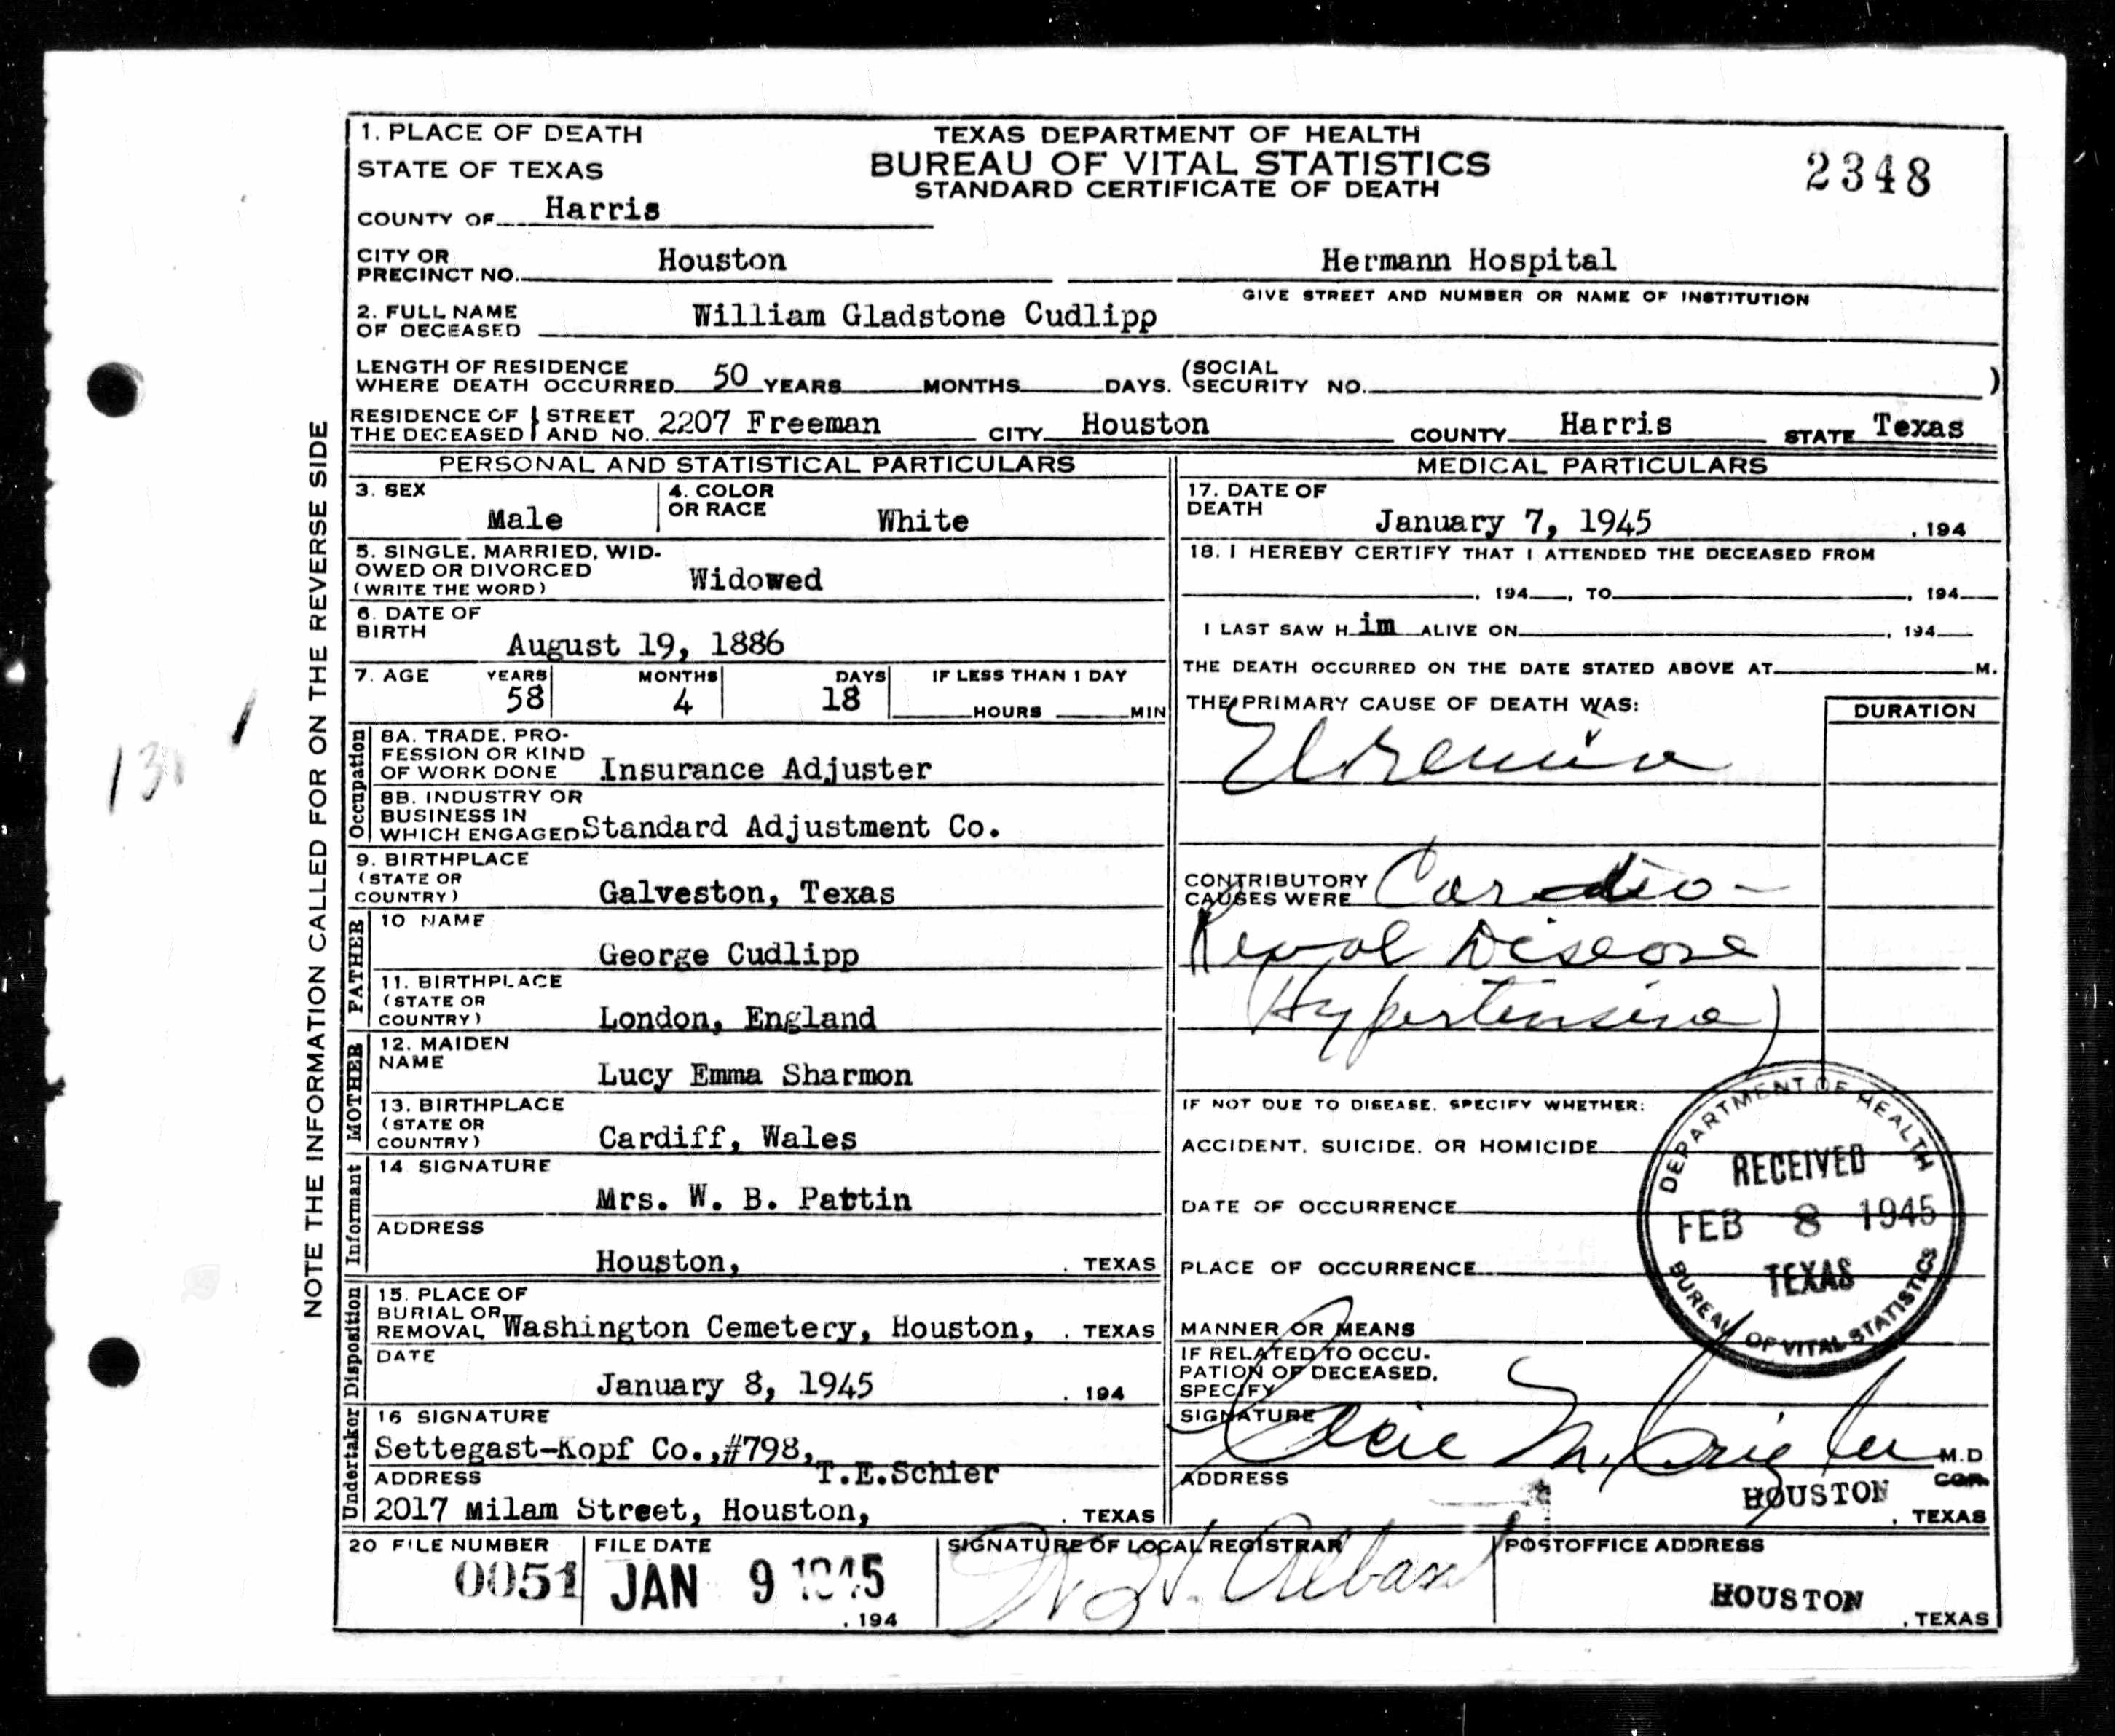 1. PLACE OF DEATH
STATE OF TEXAS
COUNTY OF Harris
TEXAS DEPARTMENT OF HEALTH
BUREAU OF VITAL STATISTICS
STANDARD CERTIFICATE OF DEATH
2348
CITY OR
PRECINCT NO. Houston
Hermann Hospital
GIVE STREET AND NUMBER OR NAME OF INSTITUTION
2. FULL NAME
OF DECEASED William Gladstone Cudlipp
LENGTH OF RESIDENCE
WHERE DEATH OCCURRED 50 YEARS MONTHS DAYS. (SOCIAL
SECURITY NO. )
RESIDENCE OF THE DECEASED } STREET AND NO. 2207 Freeman CITY Houston COUNTY Harris STATE Texas
NOTE THE INFORMATION CALLED FOR ON THE REVERSE SIDE
PERSONAL AND STATISTICAL PARTICULARS
3. SEX
Male
4. COLOR
OR RACE
White
5. SINGLE, MARRIED, WID-
OWED OR DIVORCED
(WRITE THE WORD)
Widowed
6. DATE OF
BIRTH
August 19, 1886
7. AGE YEARS MONTHS DAYS IF LESS THAN 1 DAY
58 4 18 HOURS MIN
Occupation
8A. TRADE, PRO-
FESSION OR KIND
OF WORK DONE Insurance Adjuster
8B. INDUSTRY OR
BUSINESS IN
WHICH ENGAGED Standard Adjustment Co.
9. BIRTHPLACE
(STATE OR
COUNTRY)
Galveston, Texas
FATHER
10 NAME
George Cudlipp
11. BIRTHPLACE
(STATE OR
COUNTRY)
London, England
MOTHER
12. MAIDEN
NAME
Lucy Emma Sharmon
13. BIRTHPLACE
(STATE OR
COUNTRY)
Cardiff, Wales
Informant
14 SIGNATURE
Mrs. W. B. Pattin
ADDRESS
Houston, . TEXAS
Disposition
15. PLACE OF
BURIAL OR
REMOVAL Washington Cemetery, Houston, . TEXAS
DATE
January 8, 1945 . 194
Undertaker
16 SIGNATURE
Settegast-Kopf Co.,#798,
T.E.Schier
ADDRESS
2017 Milam Street, Houston, . TEXAS
MEDICAL PARTICULARS
17. DATE OF
DEATH
January 7, 1945 . 194
18. I HEREBY CERTIFY THAT I ATTENDED THE DECEASED FROM
, 194 , TO , 194
I LAST SAW H im ALIVE ON , 194
THE DEATH OCCURRED ON THE DATE STATED ABOVE AT M.
THE PRIMARY CAUSE OF DEATH WAS:
DURATION
Uremia
CONTRIBUTORY
CAUSES WERE Cardio-
Renal Disease
(Hypertensive)
IF NOT DUE TO DISEASE, SPECIFY WHETHER:
ACCIDENT, SUICIDE, OR HOMICIDE
DATE OF OCCURRENCE
PLACE OF OCCURRENCE
MANNER OR MEANS
IF RELATED TO OCCU-
PATION OF DECEASED,
SPECIFY
DEPARTMENT OF HEALTH
RECEIVED
FEB 8 1945
TEXAS
BUREAU OF VITAL STATISTICS
SIGNATURE
M.D
COR.
ADDRESS
HOUSTON . TEXAS
20 FILE NUMBER
0051
FILE DATE
JAN 9 1945
. 194
SIGNATURE OF LOCAL REGISTRAR
POSTOFFICE ADDRESS
HOUSTON
. TEXAS